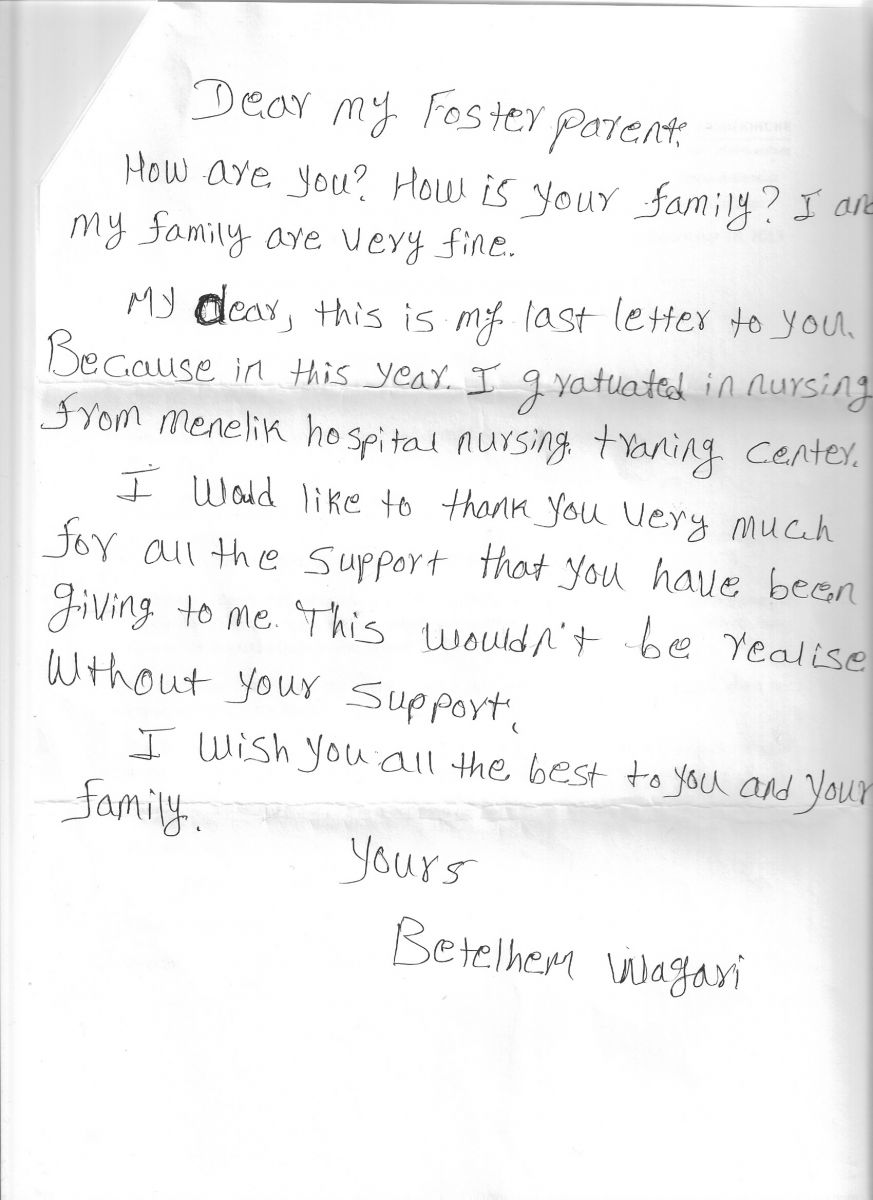 Dear my Foster parent.
How are you? How is your family? I an
my family are very fine.
My dear, this is my last letter to you.
Because in this year. I gratuated in nursing
from menelik hospital nursing. traning center.
I Would like to thank you very much
for all the support that you have been
giving to me. This wouldn't be realise
Wthout your support.
I wish you all the best to you and your
family.
Yours
Betelhem Wagari